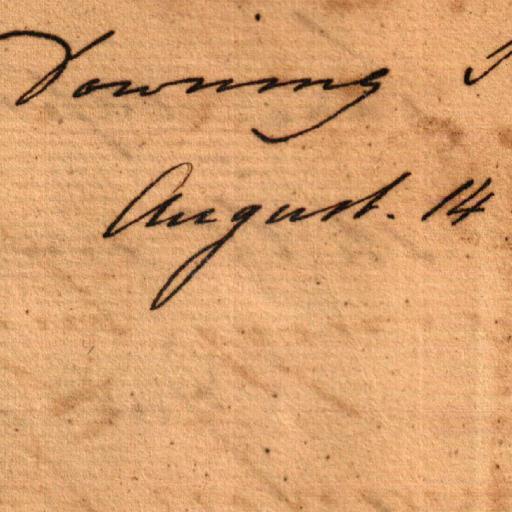 Downing
August. 14